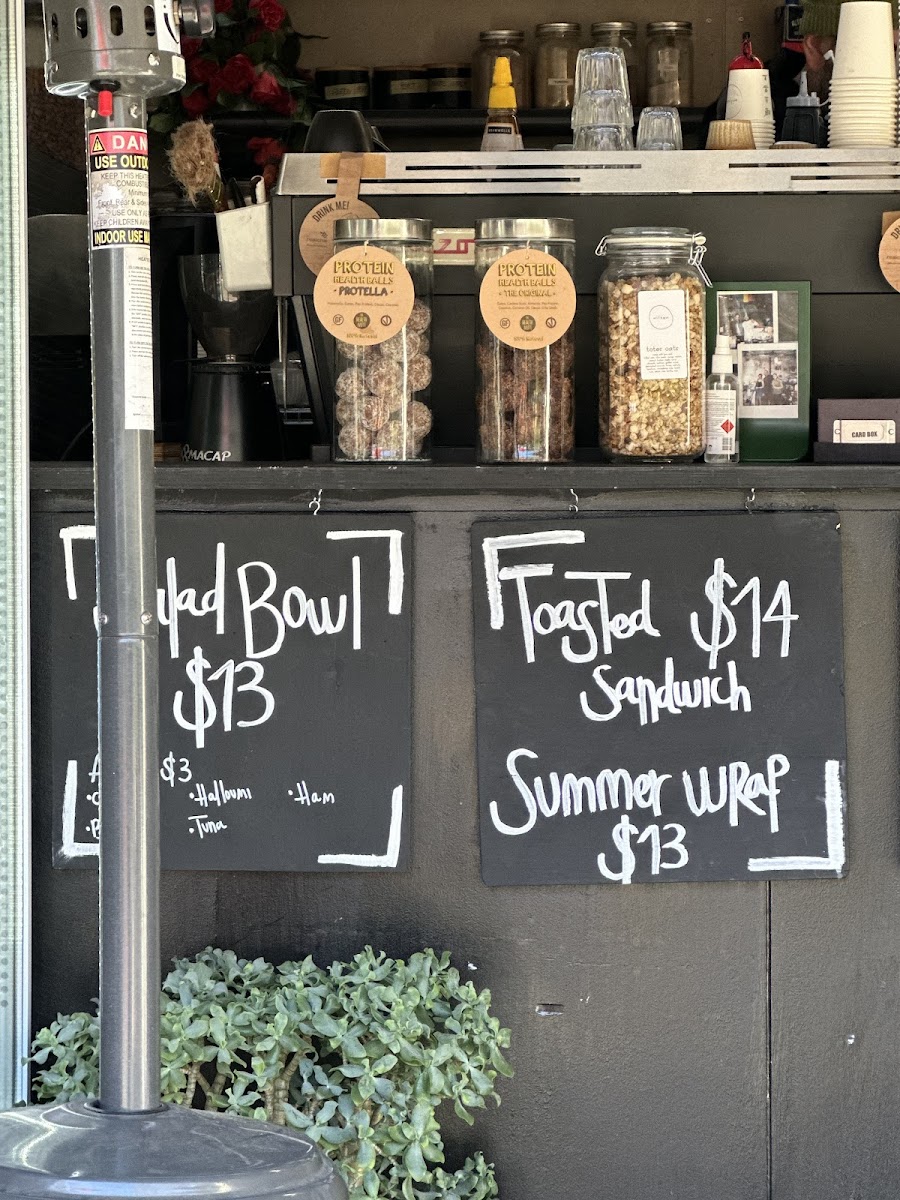 DAN
USE OUTDO
KEEP THIS HE
COMBUSTI
Minimum
Front, Rear & Sides
USE ONLY
KEEP CHILDREN AWA
INDOOR USE MA
DRINK ME!
PROTEIN
HEALTH BALLS
• PROTELLA •
100% Natural
PROTEIN
HEALTH BALLS
• THE ORIGINAL •
100% Natural
toter oats
CARD BOX
MACAP
alad Bowl
$13
A $3
• Halloumi
• Ham
• Tuna
Toasted $14
Sandwich
Summer WRaP
$13